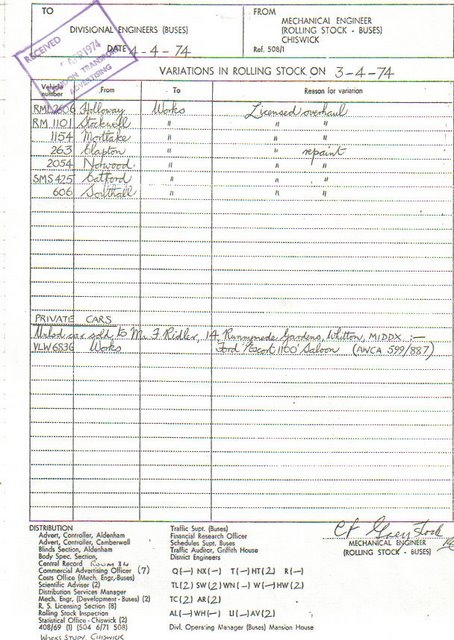 TO
DIVISIONAL ENGINEERS (BUSES)
DATE 4-4-74
FROM
MECHANICAL ENGINEER
(ROLLING STOCK - BUSES)
CHISWICK
Ref. 508/1
RECEIVED
APR 1974
LONDON TRANSPORT
ADVERTISING
VARIATIONS IN ROLLING STOCK ON 3-4-74
Vehicle number From To Reason for variation
RML 2606 Holloway Works Licensed overhaul
RM 1101 Stockwell " " "
1154 Mortlake " " "
263 Clapton " " repaint
2054 Norwood " " "
SMS 425 Catford " " "
606 Southall " " "
PRIVATE CARS
car sold to Mr F Ridler, 14, Runnymede Gardens, Whitton, MIDDX :—
VLW 683G Works Ford 'Escort 1100' Saloon (AWCA 599/887)
DISTRIBUTION
Advert, Controller, Aldenham
Advert, Controller, Camberwell
Blinds Section, Aldenham
Body Spec, Section,
Central Record ROOM 14
Commercial Advertising Officer (7)
Costs Office (Mech. Engr.-Buses)
Scientific Adviser (2)
Distribution Services Manager
Mech. Engr, (Development - Buses) (2)
R. S. Licensing Section (8)
Rolling Stock Inspection
Statistical Office - Chiswick (2)
408/69 (1) 504 6/71 508)
WORKS STUDY, CHISWICK
Traffic Supt. (Buses)
Financial Research Officer
Schedules Supt. Buses
Traffic Auditor, Griffith House
District Engineers
Q(—) NX(—) T(—) HT(2) R(—)
TL(2) SW(2) WN(—) W(—) HW(2)
TC(2) AR(2)
AL(—) WH(—) U(—) AV(2)
Divl. Operating Manager (Buses) Mansion House
MECHANICAL ENGINEER
(ROLLING STOCK - BUSES)